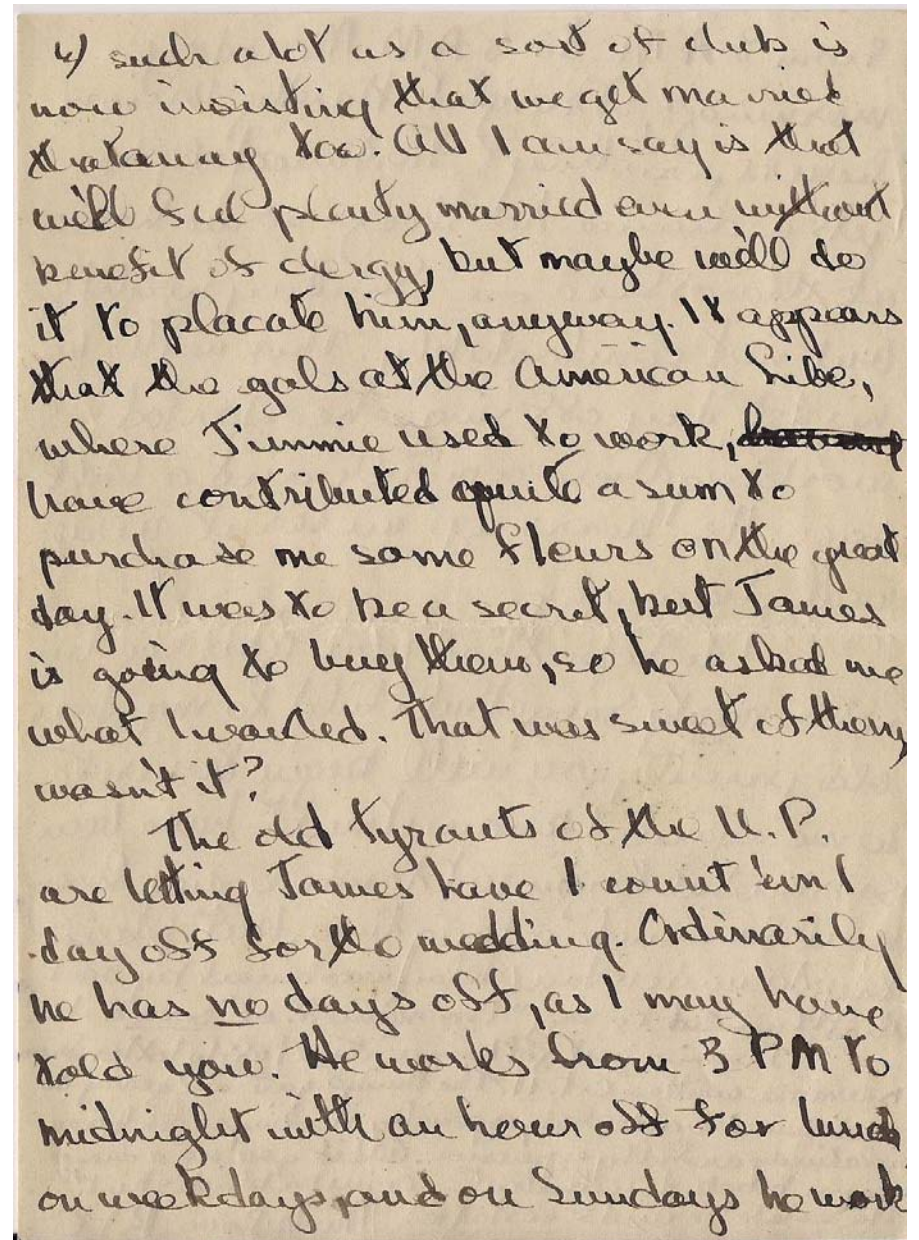 4) such alot as a sort of club is
now insisting that we get married
thataway too. All I can say is that
we'll feel plenty married even without
benefit of clergy, but maybe we'll do
it to placate him, anyway. It appears
that the gals at the American Libe,
where Jimmie used to work,
have contributed quite a sum to
purchase me some fleurs on the great
day. It was to be a secret, but James
is going to buy them, so he asked me
what I wanted. That was sweet of them,
wasn't it?
The old tyrants of the U.P.
are letting James have 1 count 'em 1
day off for the wedding. Ordinarily
he has no days off, as I may have
told you. He works from 3 PM to
midnight with an hour off for lunch
on weekdays, and on Sundays he work